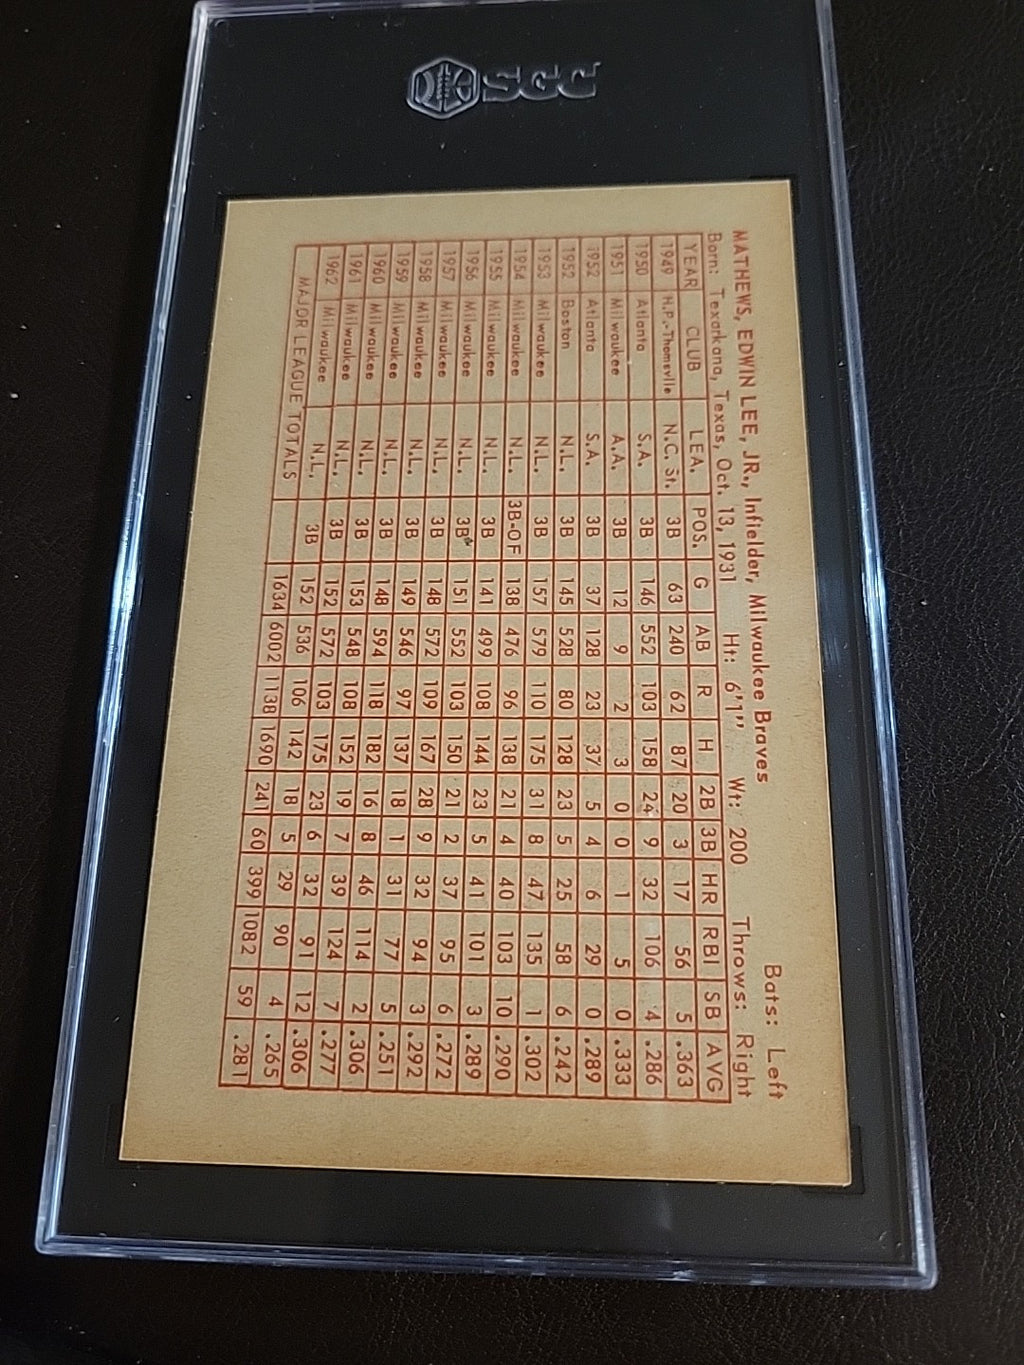 SGC
MATHEWS, EDWIN LEE, JR., Infielder, Milwaukee Braves Bats: Left
Born: Texarkana, Texas, Oct. 13, 1931 Ht: 6'1" Wt: 200 Throws: Right
YEAR CLUB LEA. POS. G AB R H 2B 3B HR RBI SB AVG
1949 H.P.-Thomsvlle N.C. St. 3B 63 240 62 87 20 3 17 56 5 .363
1950 Atlanta S.A. 3B 146 552 103 158 24 9 32 106 4 .286
1951 Milwaukee A.A. 3B 12 9 2 3 0 0 1 5 0 .333
1952 Atlanta S.A. 3B 37 128 23 37 5 4 6 29 0 .289
1952 Boston N.L. 3B 145 528 80 128 23 5 25 58 6 .242
1953 Milwaukee N.L. 3B 157 579 110 175 31 8 47 135 1 .302
1954 Milwaukee N.L. 3B-OF 138 476 96 138 21 4 40 103 10 .290
1955 Milwaukee N.L. 3B 141 499 108 144 23 5 41 101 3 .289
1956 Milwaukee N.L. 3B 151 552 103 150 21 2 37 95 6 .272
1957 Milwaukee N.L. 3B 148 572 109 167 28 9 32 94 3 .292
1958 Milwaukee N.L. 3B 149 546 97 137 18 1 31 77 5 .251
1959 Milwaukee N.L. 3B 148 594 118 182 16 8 46 114 2 .306
1960 Milwaukee N.L. 3B 153 548 108 152 19 7 39 124 7 .277
1961 Milwaukee N.L. 3B 152 572 103 175 23 6 32 91 12 .306
1962 Milwaukee N.L. 3B 152 536 106 142 18 5 29 90 4 .265
MAJOR LEAGUE TOTALS 1634 6002 1138 1690 241 60 399 1082 59 .281